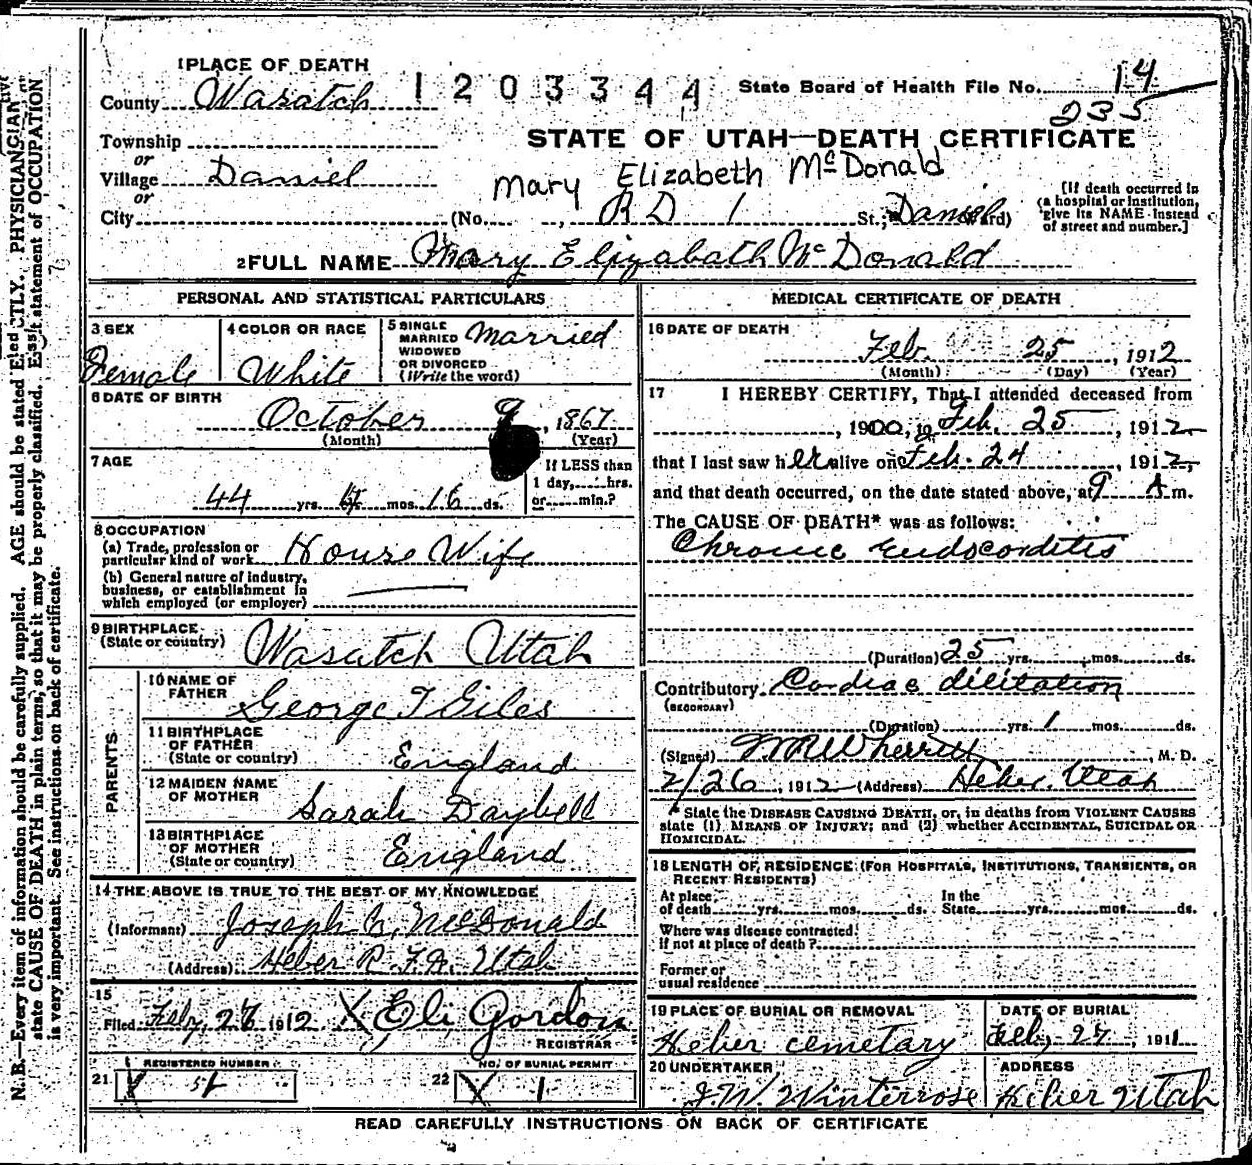 1 PLACE OF DEATH
County Wasatch 1203344 State Board of Health File No. 14
235
Township
or
STATE OF UTAH—DEATH CERTIFICATE
Village Daniel
or
Mary Elizabeth McDonald
City (No. , R D 1 St.; Daniel Ward)
[If death occurred in
a hospital or institution,
give its NAME instead
of street and number.]
2 FULL NAME Mary Elizabath McDonald
PERSONAL AND STATISTICAL PARTICULARS
3 SEX
Female
4 COLOR OR RACE
White
5 SINGLE
MARRIED
WIDOWED
OR DIVORCED
(Write the word)
Married
6 DATE OF BIRTH
October 9, 1867
(Month) (Year)
7 AGE
44 yrs. 4 mos. 16 ds.
If LESS than
1 day, hrs.
or min.?
8 OCCUPATION
(a) Trade, profession or
particular kind of work House Wife
(b) General nature of industry,
business, or establishment in
which employed (or employer)
9 BIRTHPLACE
(State or country) Wasatch Utah
PARENTS
10 NAME OF
FATHER George T Giles
11 BIRTHPLACE
OF FATHER
(State or country) England
12 MAIDEN NAME
OF MOTHER Sarah Daybell
13 BIRTHPLACE
OF MOTHER
(State or country) England
14 THE ABOVE IS TRUE TO THE BEST OF MY KNOWLEDGE
(Informant) Joseph McDonald
(Address) Heber R. F. D. Utah
15
Filed Feby, 27 1912 X Eli Gordon
REGISTRAR
REGISTERED NUMBER
21 X
NO. OF BURIAL PERMIT
22 X 1
MEDICAL CERTIFICATE OF DEATH
16 DATE OF DEATH
Feb. 25, 1912
(Month) (Day) (Year)
17 I HEREBY CERTIFY, That I attended deceased from
, 1900, to Feb. 25, 1912
that I last saw her alive on Feb. 24, 1912,
and that death occurred, on the date stated above, at 9 A m.
The CAUSE OF DEATH* was as follows:
Chronic Endocorditis
(Duration) 25 yrs. mos. ds.
Contributory Cordiac dilitation
(SECONDARY)
(Duration) yrs. 1 mos. ds.
(Signed) Wherritt, M. D.
2/26, 1912 (Address) Heber, Utah
* State the DISEASE CAUSING DEATH, or, in deaths from VIOLENT CAUSES
state (1) MEANS OF INJURY; and (2) whether ACCIDENTAL, SUICIDAL OR
HOMICIDAL.
18 LENGTH OF RESIDENCE (FOR HOSPITALS, INSTITUTIONS, TRANSIENTS, OR
RECENT RESIDENTS)
At place
of death yrs. mos. ds.
In the
State yrs. mos. ds.
Where was disease contracted
if not at place of death?
Former or
usual residence
19 PLACE OF BURIAL OR REMOVAL
Heber cemetary
DATE OF BURIAL
Feb, 27, 1911
20 UNDERTAKER
J. W. Winterrose
ADDRESS
Heber Utah
READ CAREFULLY INSTRUCTIONS ON BACK OF CERTIFICATE
N. B.—Every item of information should be carefully supplied. AGE should be stated EXACTLY. PHYSICIANS
state CAUSE OF DEATH in plain terms, so that it may be properly classified. statement of OCCUPATION
is very important. See instructions on back of certificate.